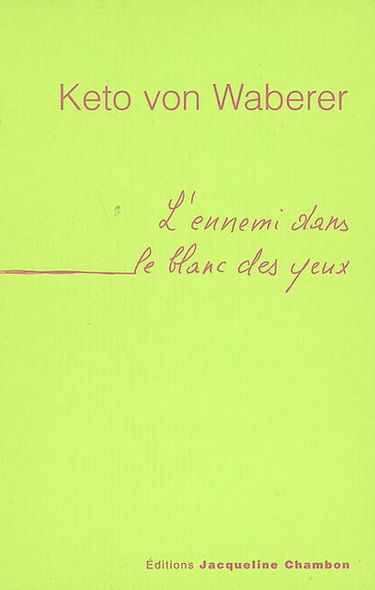 Keto von Waberer
L'ennemi dans
le blanc des yeux
Éditions Jacqueline Chambon